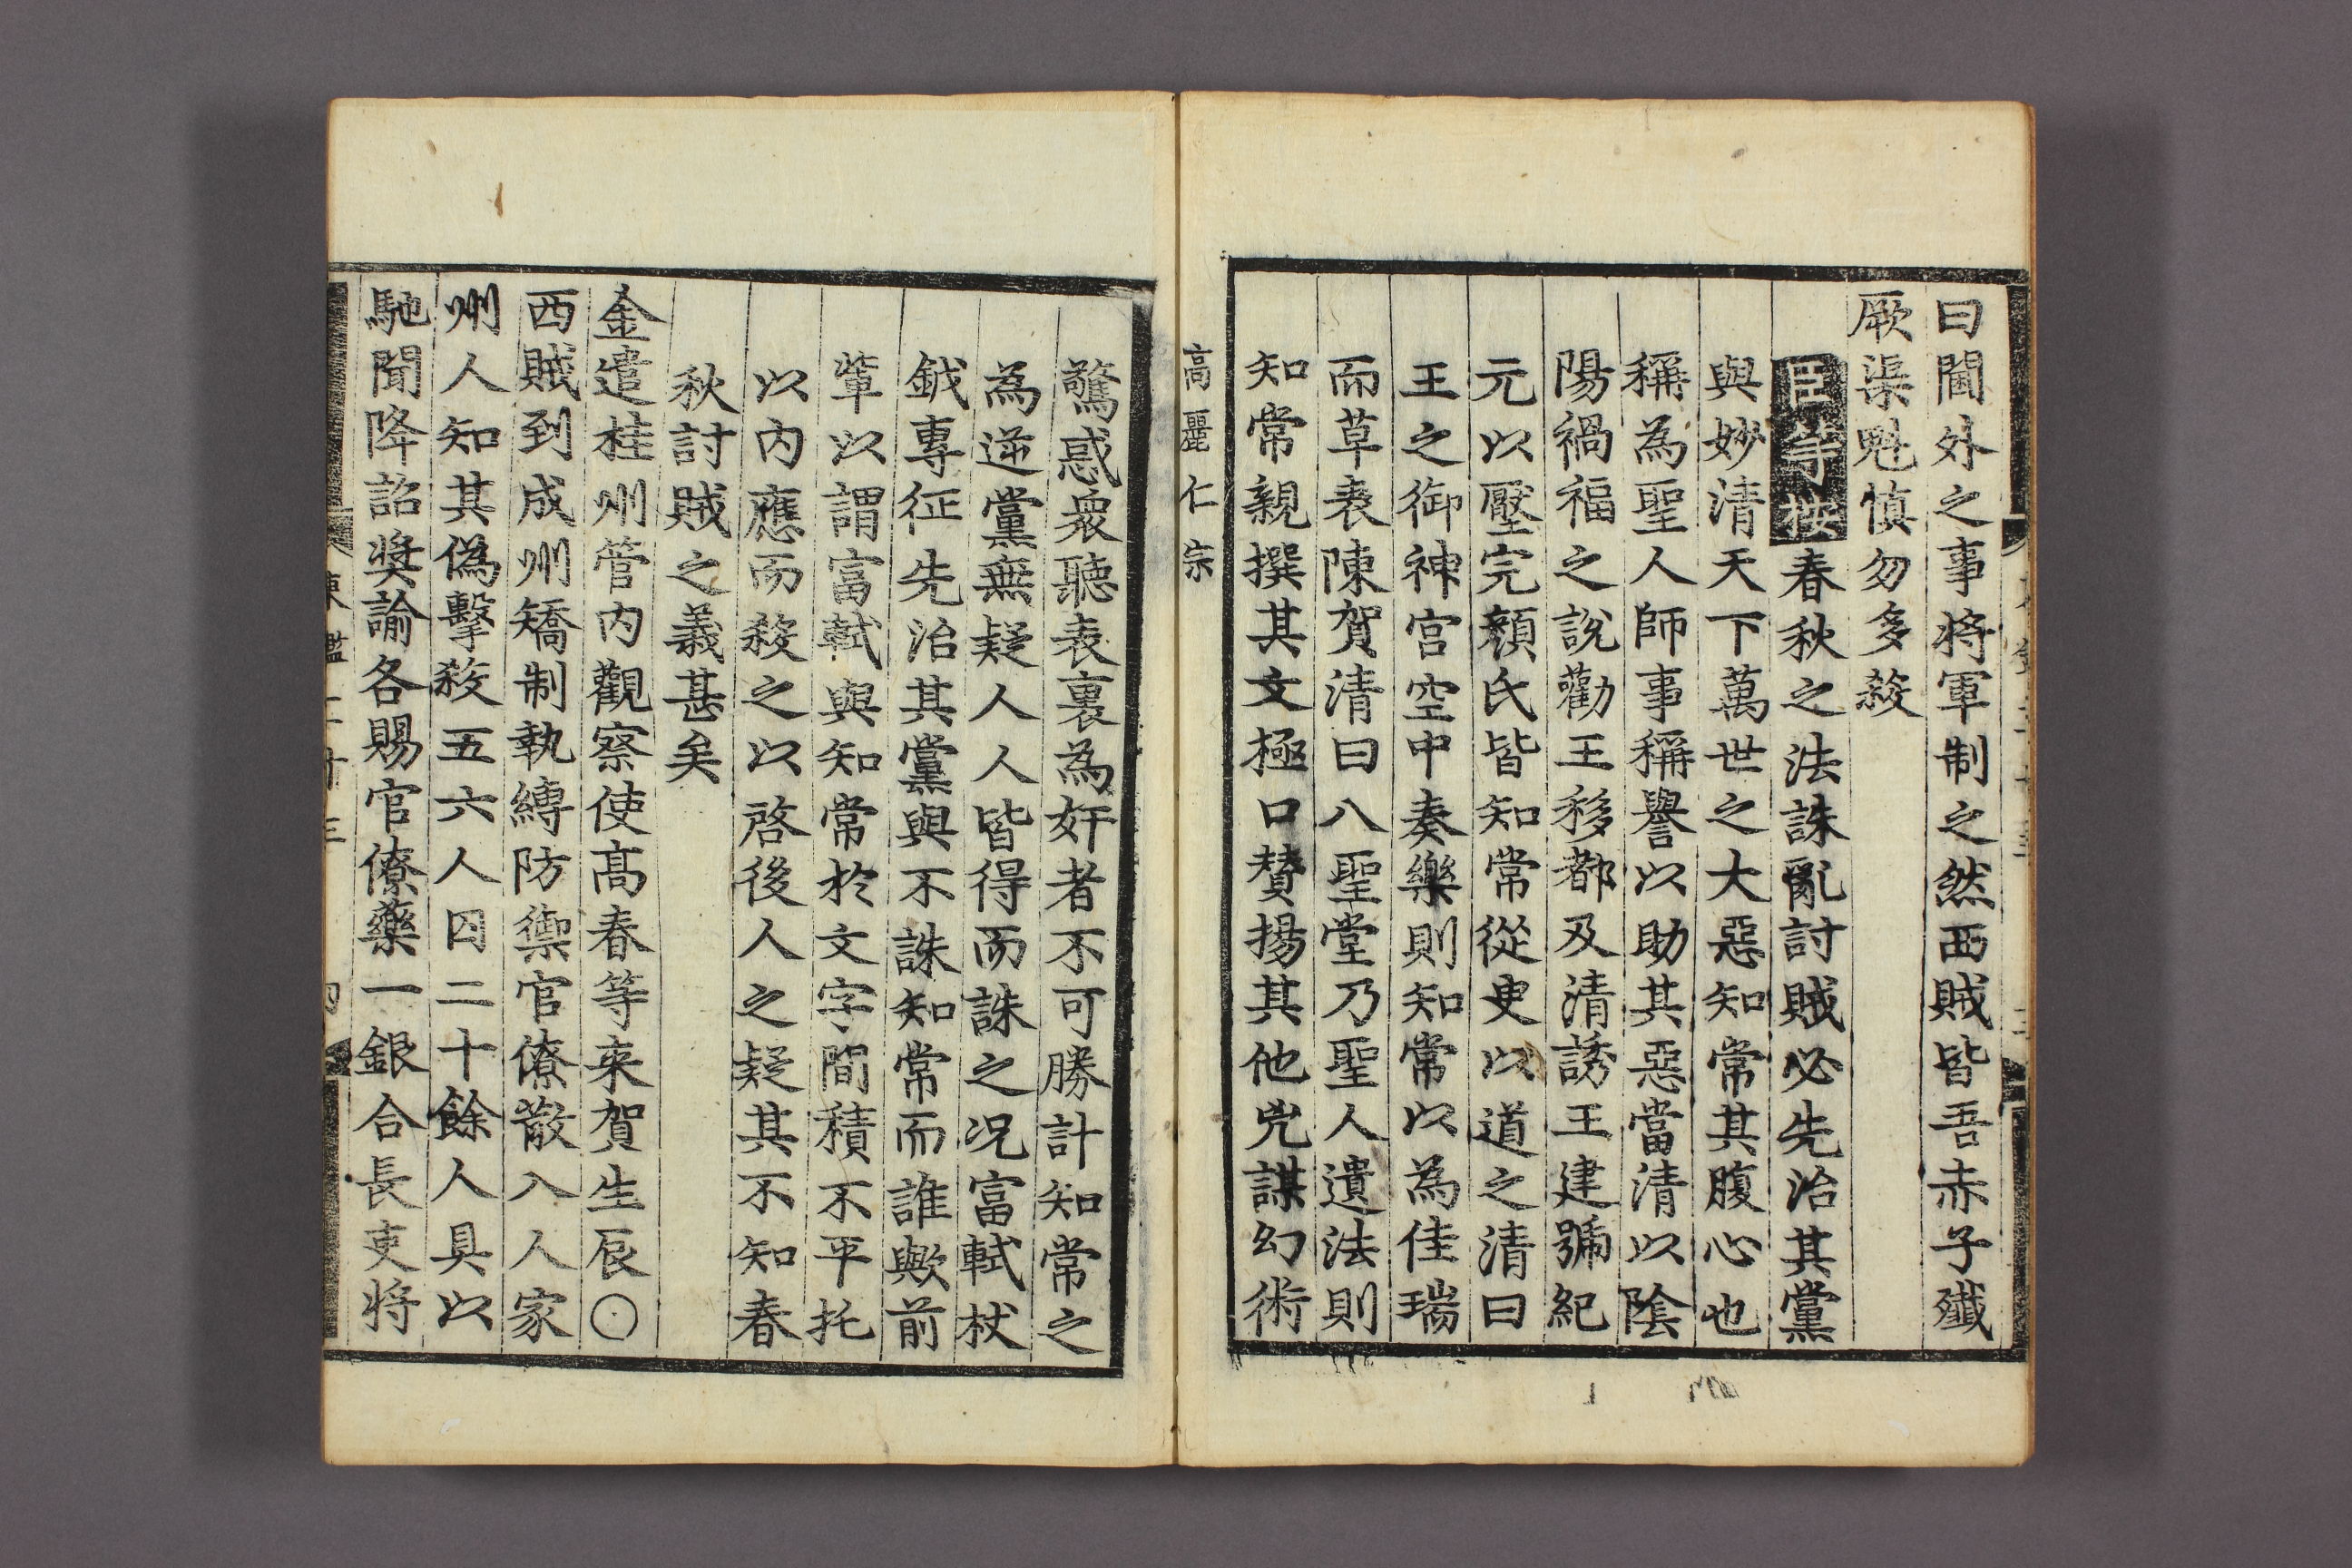 曰閫外之事將軍制之然西賊皆吾赤子殲
厥渠魁愼勿多殺
臣等按春秋之法誅亂討賊必先治其黨
與妙清天下萬世之大惡知常其腹心也
稱為聖人師事稱譽以助其惡當清以陰
陽禍福之說勸王移都及清誘王建號紀
元以壓完顔氏皆知常從㬰以道之清曰
王之御神宮空中奏樂則知常以為佳瑞
而草表陳賀清曰八聖堂乃聖人遺法則
知常親撰其文極口賛揚其他兇謀幻術
高麗仁宗
驚惑衆聽表裏為奸者不可勝計知常之
為逆黨無疑人人皆得而誅之况富軾杖
鉞專征先治其黨與不誅知常而誰歟前
軰以謂富軾與知常於文字間積不平托
以內應而殺之以啓後人之疑其不知春
秋討賊之義甚矣
金遣桂州管內觀察使高春等來賀生辰〇
西賊到成州矯制執縛防禦官僚散入人家
州人知其偽擊殺五六人囚二十餘人具以
馳聞降詔奬諭各賜官僚藥一銀合長吏將